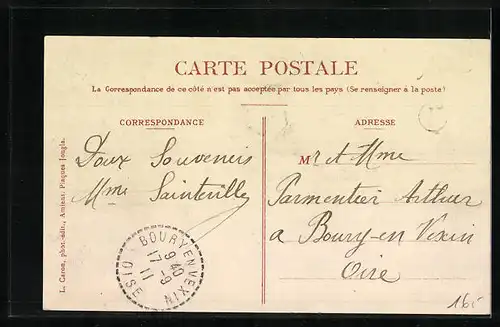 CARTE POSTALE
La Correspondance de ce côté n'est pas acceptée par tous les pays (Se renseigner à la poste)
CORRESPONDANCE
Doux Souvenirs
Mme Sainteville
ADRESSE
Mr et Mme
Parmentier Arthur
a Boury-en Vexin
Oise
BOURY EN VEXIN
9 40
17 - 9
11
OISE
L. Caron, phot.-édit., Amiens. Plaques Jougla.